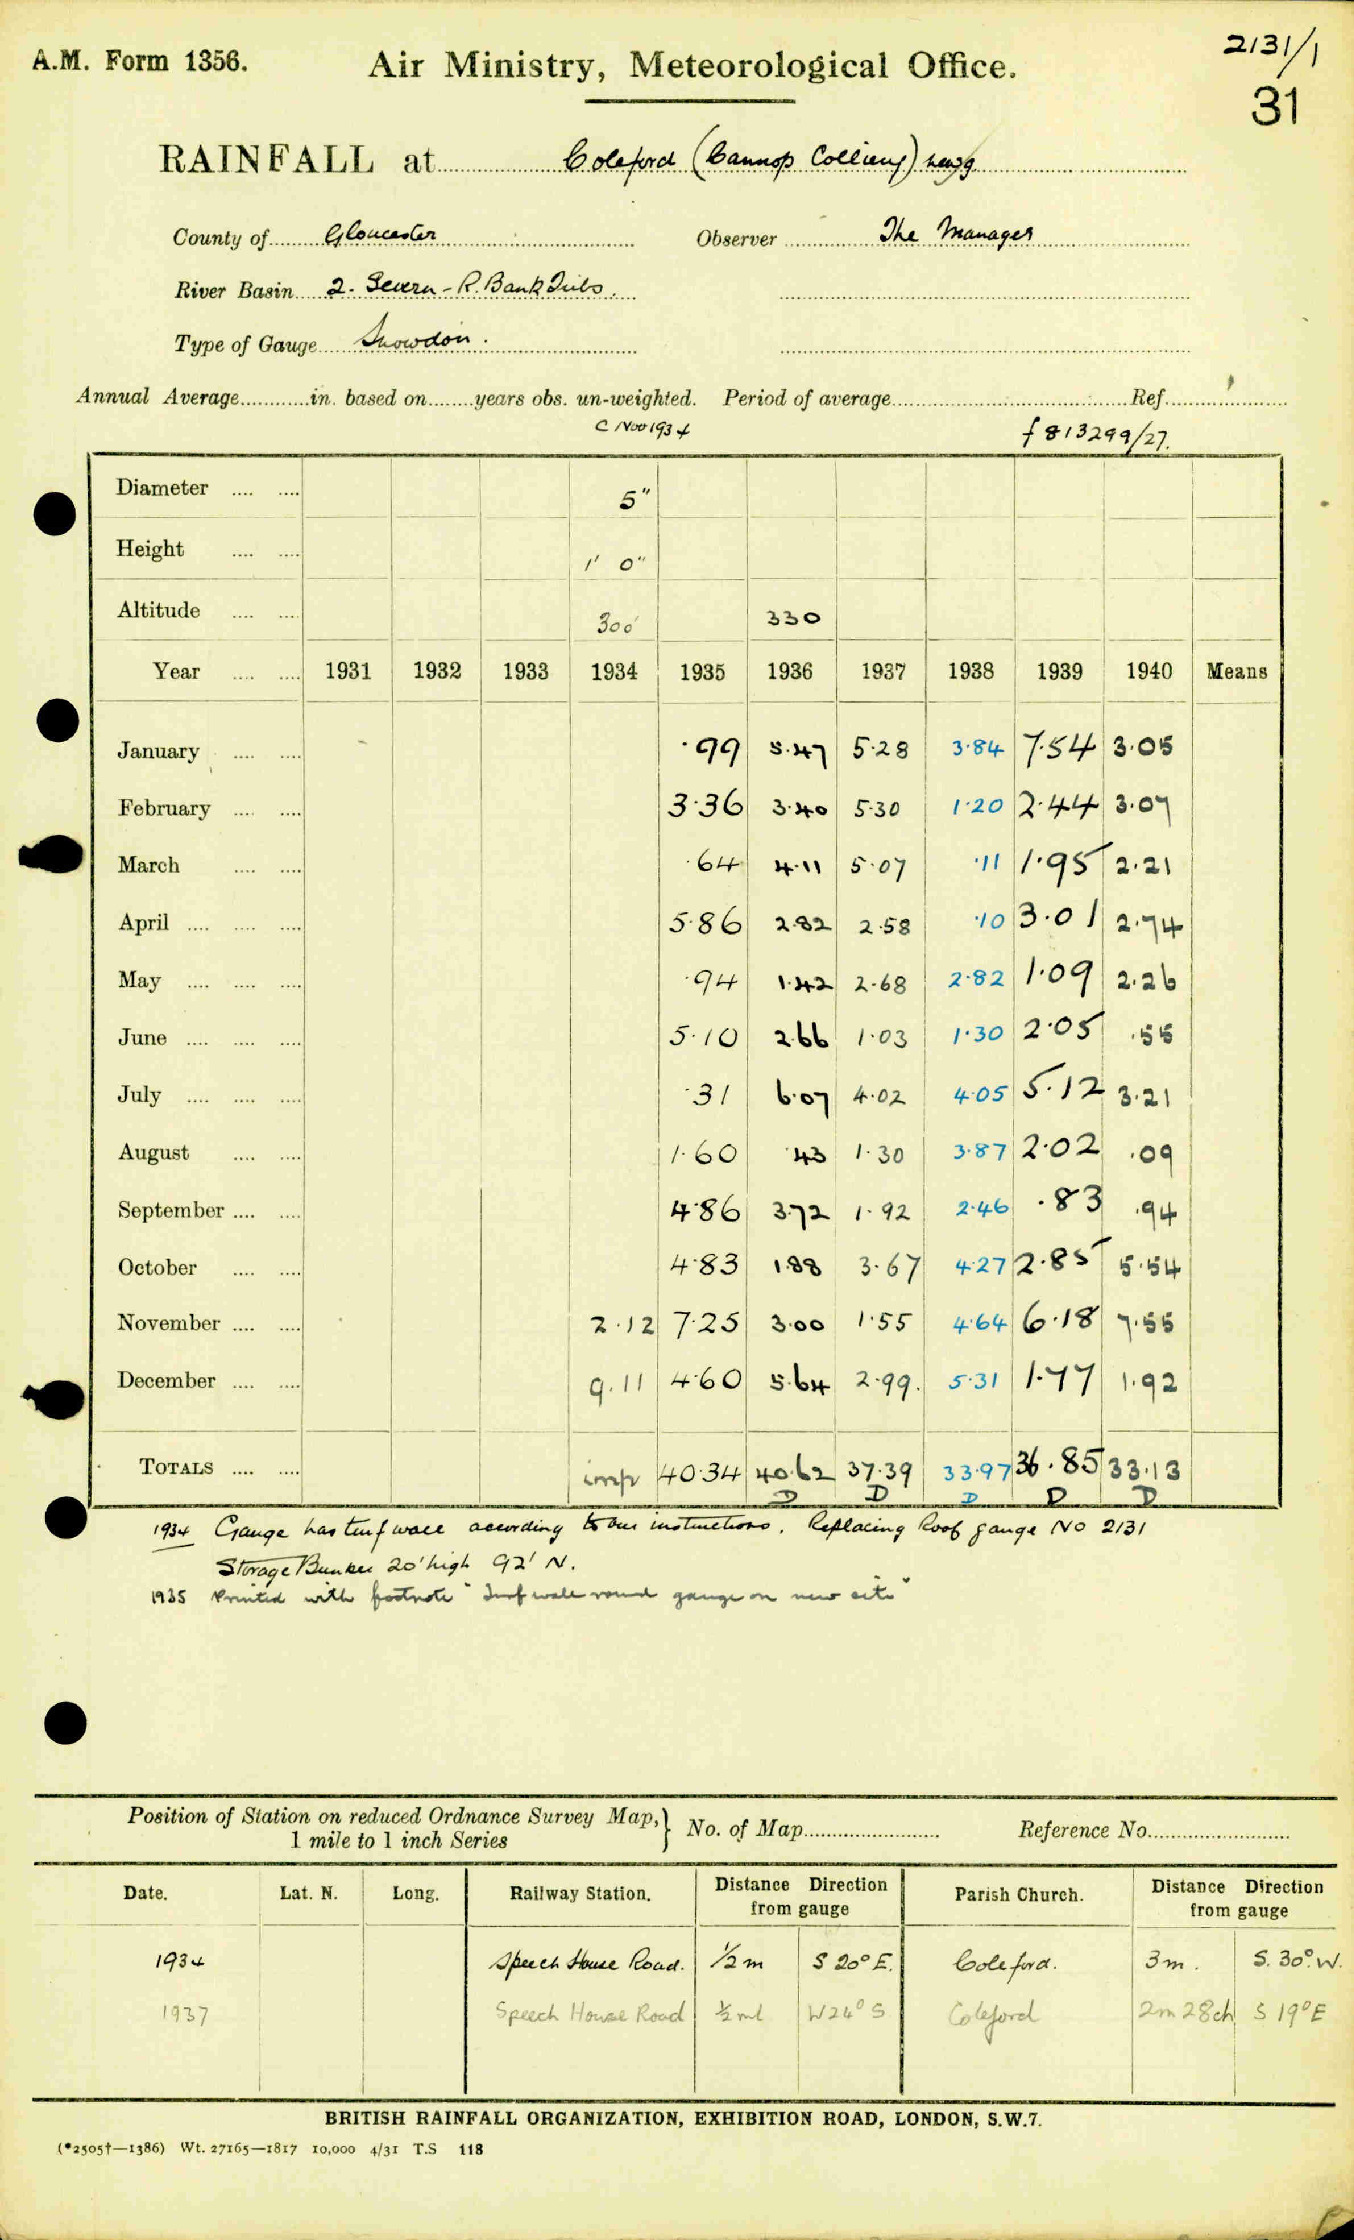 A.M. Form 1356.
Air Ministry, Meteorological Office.
2131/1
31
RAINFALL at Coleford (Cannop Colliery) new g
County of Gloucester Observer The Manager
River Basin 2. Severn - R. Bank Tribs.
Type of Gauge Snowdon.
Annual Average in. based on years obs. un-weighted. Period of average Ref.
C Nov 1934 f 813299/27.
Diameter 5"
Height 1' 0"
Altitude 300' 330
Year 1931 1932 1933 1934 1935 1936 1937 1938 1939 1940 Means
January ·99 5·47 5·28 3·84 7·54 3·05
February 3·36 3·40 5·30 1·20 2·44 3·07
March ·64 4·11 5·07 ·11 1·95 2·21
April 5·86 2·82 2·58 ·10 3·01 2·74
May ·94 1·42 2·68 2·82 1·09 2·26
June 5·10 2·66 1·03 1·30 2·05 ·55
July ·31 6·07 4·02 4·05 5·12 3·21
August 1·60 ·43 1·30 3·87 2·02 ·09
September 4·86 3·72 1·92 2·46 ·83 ·94
October 4·83 1·88 3·67 4·27 2·85 5·54
November 2·12 7·25 3·00 1·55 4·64 6·18 7·55
December 9·11 4·60 5·64 2·99 5·31 1·77 1·92
TOTALS imp 40·34 40·62 37·39 33·97 36·85 33·13
D D D D D
1934 Gauge has turf wall according to our instructions. Replacing Roof gauge No 2131
Storage Bunker 20' high 92' N.
1935 Printed with footnote "Turf wall round gauge on new site"
Position of Station on reduced Ordnance Survey Map,
1 mile to 1 inch Series } No. of Map Reference No.
Date. Lat. N. Long. Railway Station. Distance Direction from gauge Parish Church. Distance Direction from gauge
1934 Speech House Road. ½ m S 20° E. Coleford. 3 m. S. 30° W.
1937 Speech House Road ½ ml W 24° S Coleford 2m 28ch S 19° E
BRITISH RAINFALL ORGANIZATION, EXHIBITION ROAD, LONDON, S.W.7.
(*2505†—1386) Wt. 27165—1817 10,000 4/31 T.S 118